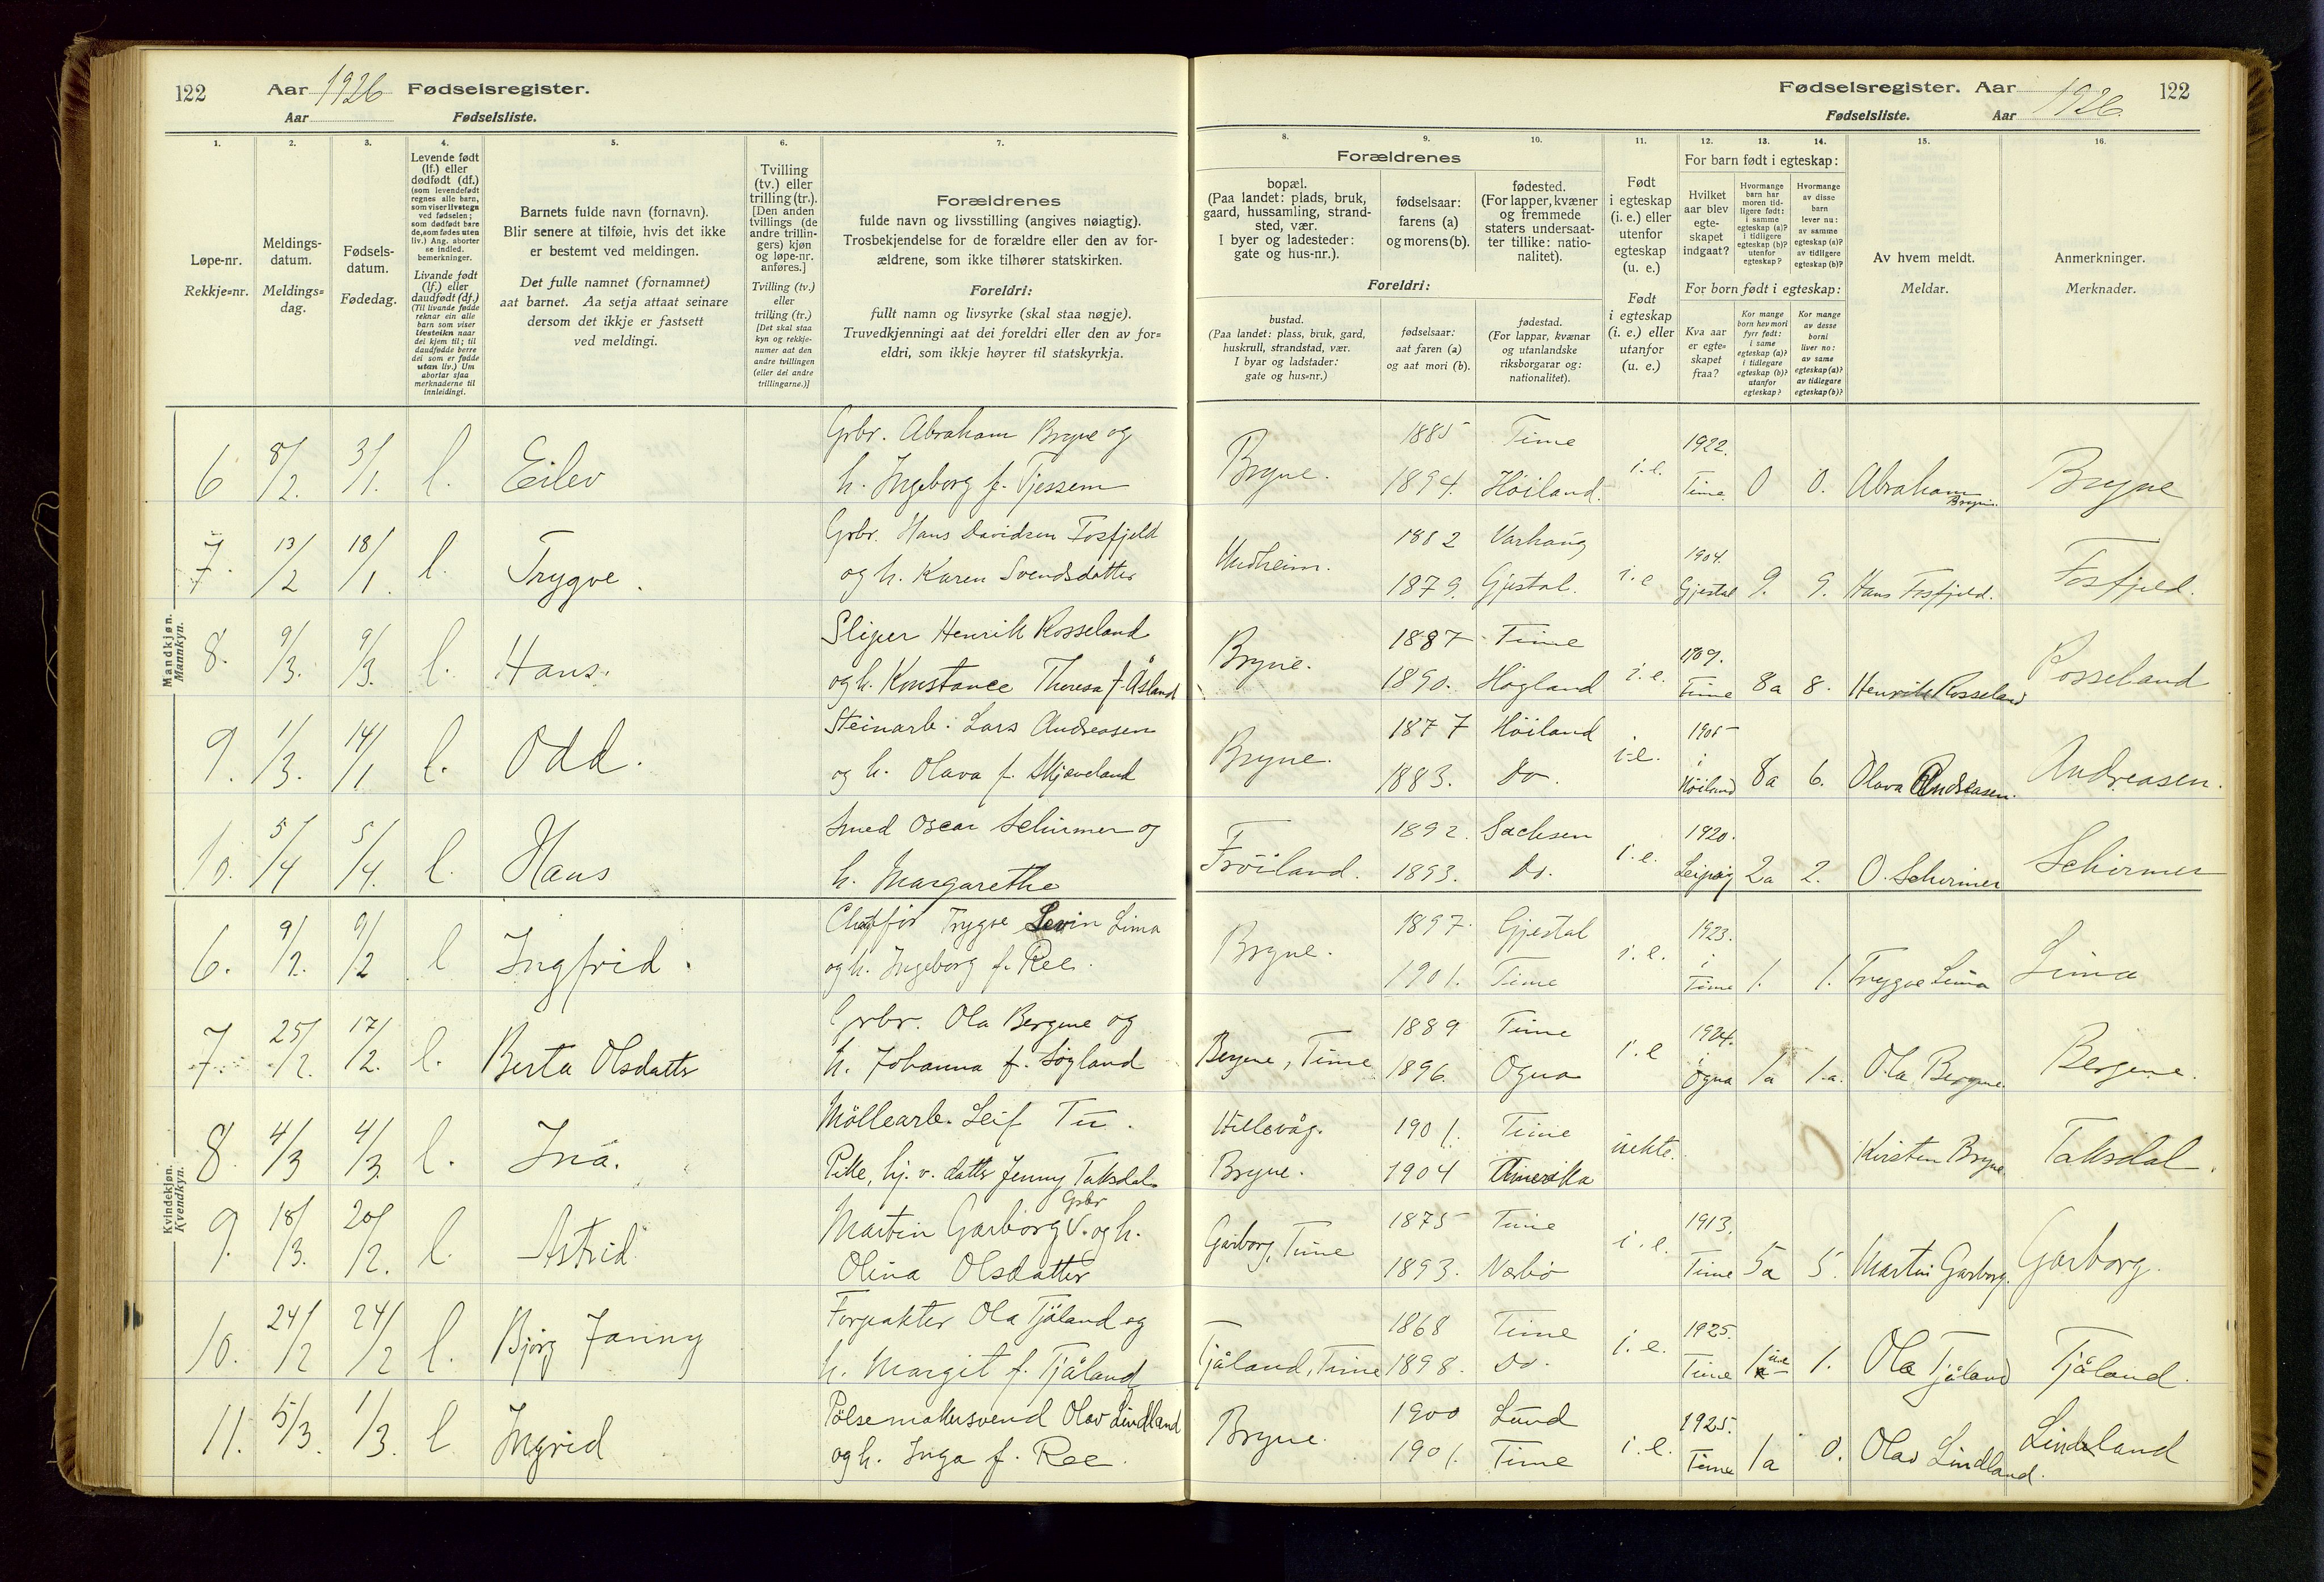 122
Aar 1926 Fødselsregister.
Aar Fødselsliste.
Fødselsregister. Aar
1926.
122
Fødselsliste. Aar
1.
2.
3.
4.
5.
6.
7.
8.
9.
10.
11.
12.
13.
14.
15.
16.
Løpe-nr.
Rekkje=nr.
Meldings-
datum.
Meldings=
dag.
Fødsels-
datum.
Fødedag.
Levende født
(lf.) eller
dødfødt (df.)
(som levendefødt
regnes alle barn,
som viser livstegn
ved fødselen;
som dødfødt bare
de, som fødes uten
liv.) Ang. aborter
se indled.
bemerkninger.
Livande født
(lf.) eller
daudfødt (df.)
(Til livande fødde
reknar ein alle
barn som viser
livsteikn naar
dei kjem til; til
daudfødde berre
dei som er fødde
utan liv.) Um
abortar sjaa
merknaderne til
innleidingi.
Barnets fulde navn (fornavn).
Blir senere at tilføie, hvis det ikke
er bestemt ved meldingen.
Det fulle namnet (fornamnet)
aat barnet. Aa setja attaat seinare
dersom det ikkje er fastsett
ved meldingi.
Tvilling
(tv.) eller
trilling (tr.).
[Den anden
tvillings (de
andre trillin-
gers) kjøn
og løpe-nr.
anføres.]
Tvilling (tv.)
eller
trilling (tr.)
[Det skal staa
kyn og rekkje-
numer aat den
andre tvillingen
(eller dei andre
trillingarne.)]
Forældrenes
fulde navn og livsstilling (angives nøiagtig).
Trosbekjendelse for de forældre eller den av for-
ældrene, som ikke tilhører statskirken.
Foreldri:
fullt namn og livsyrke (skal staa nøgje).
Truvedkjenningi aat dei foreldri eller den av for=
eldri, som ikkje høyrer til statskyrkja.
Forældrenes
bopæl.
(Paa landet: plads, bruk,
gaard, hussamling, strand-
sted, vær.
I byer og ladesteder:
gate og hus-nr.).
fødselsaar:
farens (a)
og morens (b).
fødested.
(For lapper, kvæner
og fremmede
staters undersaat-
ter tillike: natio-
nalitet).
Foreldri:
bustad.
(Paa landet: plass, bruk, gard,
huskrull, strandstad, vær.
I byar og ladstader:
gate og hus=nr.)
fødselsaar:
aat faren (a)
og aat mori (b).
fødestad.
(For lappar, kvænar
og utanlandske
riksborgarar og:
nationalitet).
Født
i egteskap
(i. e.) eller
utenfor
egteskap
(u. e.)
Født
i egteskap
(i. e.) eller
utanfor
(u. e.)
For barn født i egteskap:
Hvilket
aar blev
egte-
skapet
indgaat?
Hvormange
barn har
moren tid-
ligere født:
i samme
egteskap (a)?
i tidligere
egteskap (b)?
utenfor
egteskap?
Hvormange
av disse
barn
lever nu:
av samme
egteskap (a)?
av tidligere
egteskap (b)?
For born født i egteskap:
Kva aar
er egte=
skapet
fraa?
Kor mange
born hev mori
fyrr født:
i same
egteskap (a)?
i tidlegare
egteskap (b)?
utanfor
egteskap?
Kor mange
av desse
borni
liver no:
av same
egteskap (a)?
av tidlegare
egteskap (b)?
Av hvem meldt.
Meldar.
Anmerkninger.
Merknader.
Mandkjøn.
Mannkyn.
6 8/2. 3/1. l. Eilev Grbr. Abraham Bryne og
h. Ingeborg f. Tjessem
Bryne. 1885 Time
1894. Høiland. i.e. 1922. Time 0 0. Abraham Bryne. Bryne
7. 13/2 18/1. l. Trygve. Grbr. Hans Davidsen Fosfjeld
og h. Karen Svendsdatter
Undheim. 1882 Varhaug
1879. Gjestal. i.e 1904. Gjestal 9. 9. Hans Fosfjeld. Fosfjeld.
8. 9/3. 9/3. l. Hans. Sliper Henrik Rosseland
og h. Konstance Theresa f. Åsland
Bryne. 1887 Time
1890. Høgland i.e. 1909. Time 8a 8. Henrik Rosseland Rosseland
9. 1/3. 14/1 l. Odd. Steinarb. Lars Andreasen
og h. Olava f. Skjæveland
Bryne. 1877 Høiland
1883. Do. i.e. 1905 i Høiland 8a 6. Olava Andreasen. Andreasen.
10. 5/4 5/4. l. Hans Smed Oscar Schirmer og
h. Margarethe
Frøiland. 1892. Sachsen
1893. Do. i.e. 1920. Leipzig 2a 2. O. Schirmer Schirmer
Kvindekjøn.
Kvendkyn.
6. 9/2. 9/2 l Ingfrid. Chaffør Trygve Levin Lima
og h. Ingeborg f. Ree.
Bryne. 1897 Gjestal
1901. Time i.e. 1923. i Time 1. 1. Trygve Lima Lima
7 25/2. 17/2. l. Berta Olsdatter Grbr. Ola Bergene og
h. Johanna f. Søgland
Bergene, Time 1889 Time
1896. Ogna i.e 1924. i Ogna 1a 1.a. Ola Bergene. Bergene.
8 4/3 4/3. l. Ina. Möllearb. Leif Tu.
Pike, hj. v. datter Jenny Taksdal.
Hillevåg. 1901. Time
Bryne. 1904 Amerika uekte. Kirsten Bryne Taksdal.
9. 18/3. 20/2. l. Astrid Martin Garborg Grbr V. og h.
Olina Olsdatter
Garborg, Time 1875 Time
1893. Nærbø i.e. 1913. Time 5a 5. Martin Garborg. Garborg.
10. 24/2 24/2 l. Bjørg Janny Forpakter Ola Tjåland og
h. Margit f. Tjåland
Tjåland, Time 1868 Time
1898. Do. i.e. 1925. Time 1 u.e 1. Ola Tjåland Tjåland.
11. 5/3. 1/3. l Ingrid Pölsemakersvend Olav Lindland
og h. Inga f. Ree.
Bryne. 1900 Lund
1901. Time i.e. 1925. Time 1a 0. Olav Lindland. Lindland